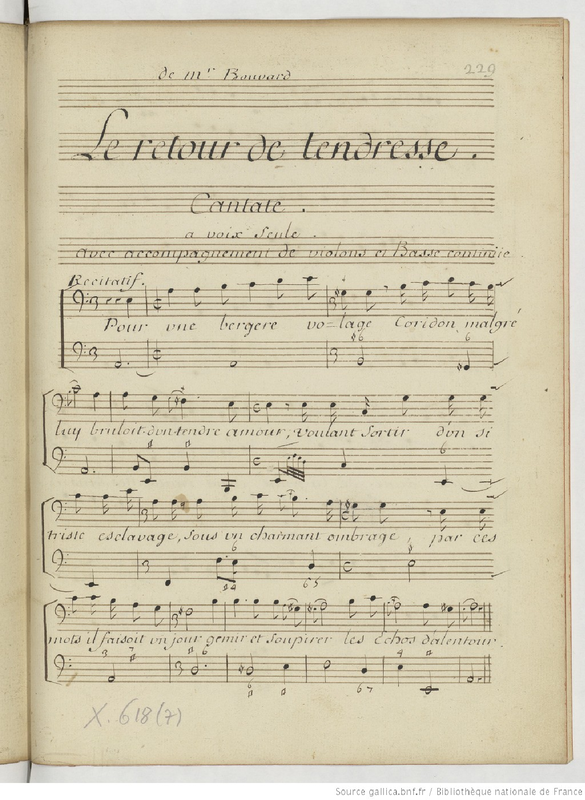 de mr Bouvard
229
Le retour de tendresse.
Cantate.
a voix seule.
avec accompagnement de violons et Basse continüe
Recitatif.
Pour une bergere vo=lage Coridon malgré
luy bruloit d'un tendre amour, voulant sortir d'un si
triste esclavage, sous un charmant ombrage, par ces
mots il faisoit un jour gemir et soupirer les Echos d'alentour.
X. 618 (7)
Source gallica.bnf.fr / Bibliothèque nationale de France